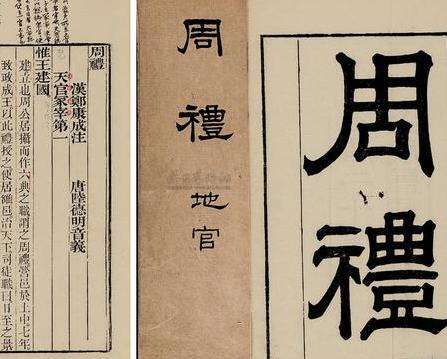 周禮
漢鄭康成注
唐陸德明音義
天官冢宰第一
惟王建國
建立也周公居攝而作六典之職謂之周禮營邑於土中七年
致政成王以此禮授之使居雒邑治天下司徒職曰日至之景
周禮
地官
周禮